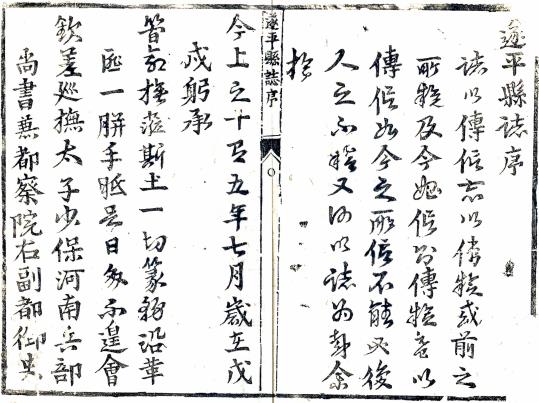 遂平縣誌序
誌以傳信亦以傳疑或前之
所疑及今始信則傳疑竟以
傳信如今之所信不能必後
人之不疑又何以誌為耶余
於
遂平縣誌序
今上之十有五年七月歲在戊
戌躬承
撫蒞斯土一切篆務沿革
匪一胼手胝足日夕不遑會
欽差巡撫太子少保河南兵部
尚書兼都察院右副都御史